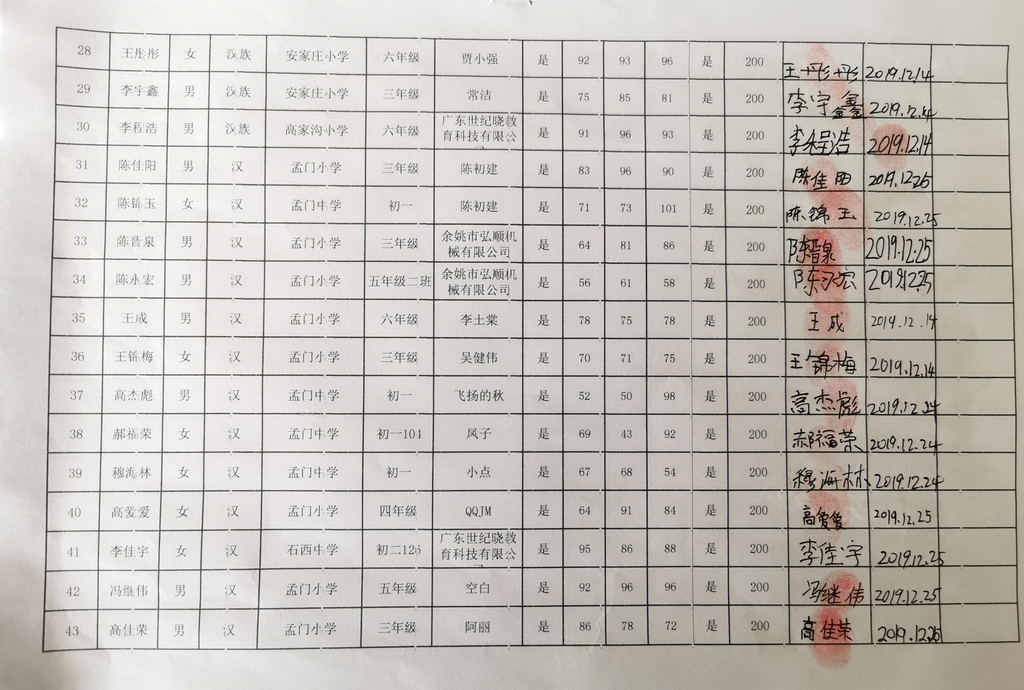 28 王彤彤 女 汉族 安家庄小学 六年级 贾小强 是 92 93 96 是 200 王彤彤 2019.12.14
29 李宇鑫 男 汉族 安家庄小学 三年级 常洁 是 75 85 81 是 200 李宇鑫 2019.12.14
30 李程浩 男 汉族 高家沟小学 六年级 广东世纪晓教育科技有限公 是 91 96 93 是 200 李程浩 2019.12.14
31 陈佳阳 男 汉 孟门小学 三年级 陈初建 是 83 96 90 是 200 陈佳阳 2019.12.25
32 陈锦玉 女 汉 孟门中学 初一 陈初建 是 71 73 101 是 200 陈锦玉 2019.12.25
33 陈晋泉 男 汉 孟门小学 三年级 余姚市弘顺机械有限公司 是 64 81 86 是 200 陈晋泉 2019.12.25
34 陈永宏 男 汉 孟门小学 五年级二班 余姚市弘顺机械有限公司 是 56 61 58 是 200 陈永宏 2019.12.25
35 王成 男 汉 孟门小学 六年级 李土棠 是 78 75 78 是 200 王成 2019.12.14
36 王锦梅 女 汉 孟门小学 三年级 吴健伟 是 70 71 75 是 200 王锦梅 2019.12.14
37 高杰彪 男 汉 孟门中学 初一 飞扬的秋 是 52 50 98 是 200 高杰彪 2019.12.24
38 郝福荣 女 汉 孟门中学 初一104 凤子 是 69 43 92 是 200 郝福荣 2019.12.24
39 穆海林 女 汉 孟门中学 初一 小点 是 67 68 54 是 200 穆海林 2019.12.24
40 高爱爱 女 汉 孟门小学 四年级 QQJM 是 64 91 84 是 200 高爱爱 2019.12.25
41 李佳宇 女 汉 石西中学 初二126 广东世纪晓教育科技有限公 是 95 86 88 是 200 李佳宇 2019.12.25
42 冯继伟 男 汉 孟门小学 五年级 空白 是 92 96 96 是 200 冯继伟 2019.12.25
43 高佳荣 男 汉 孟门小学 三年级 阿丽 是 86 78 72 是 200 高佳荣 2019.12.25